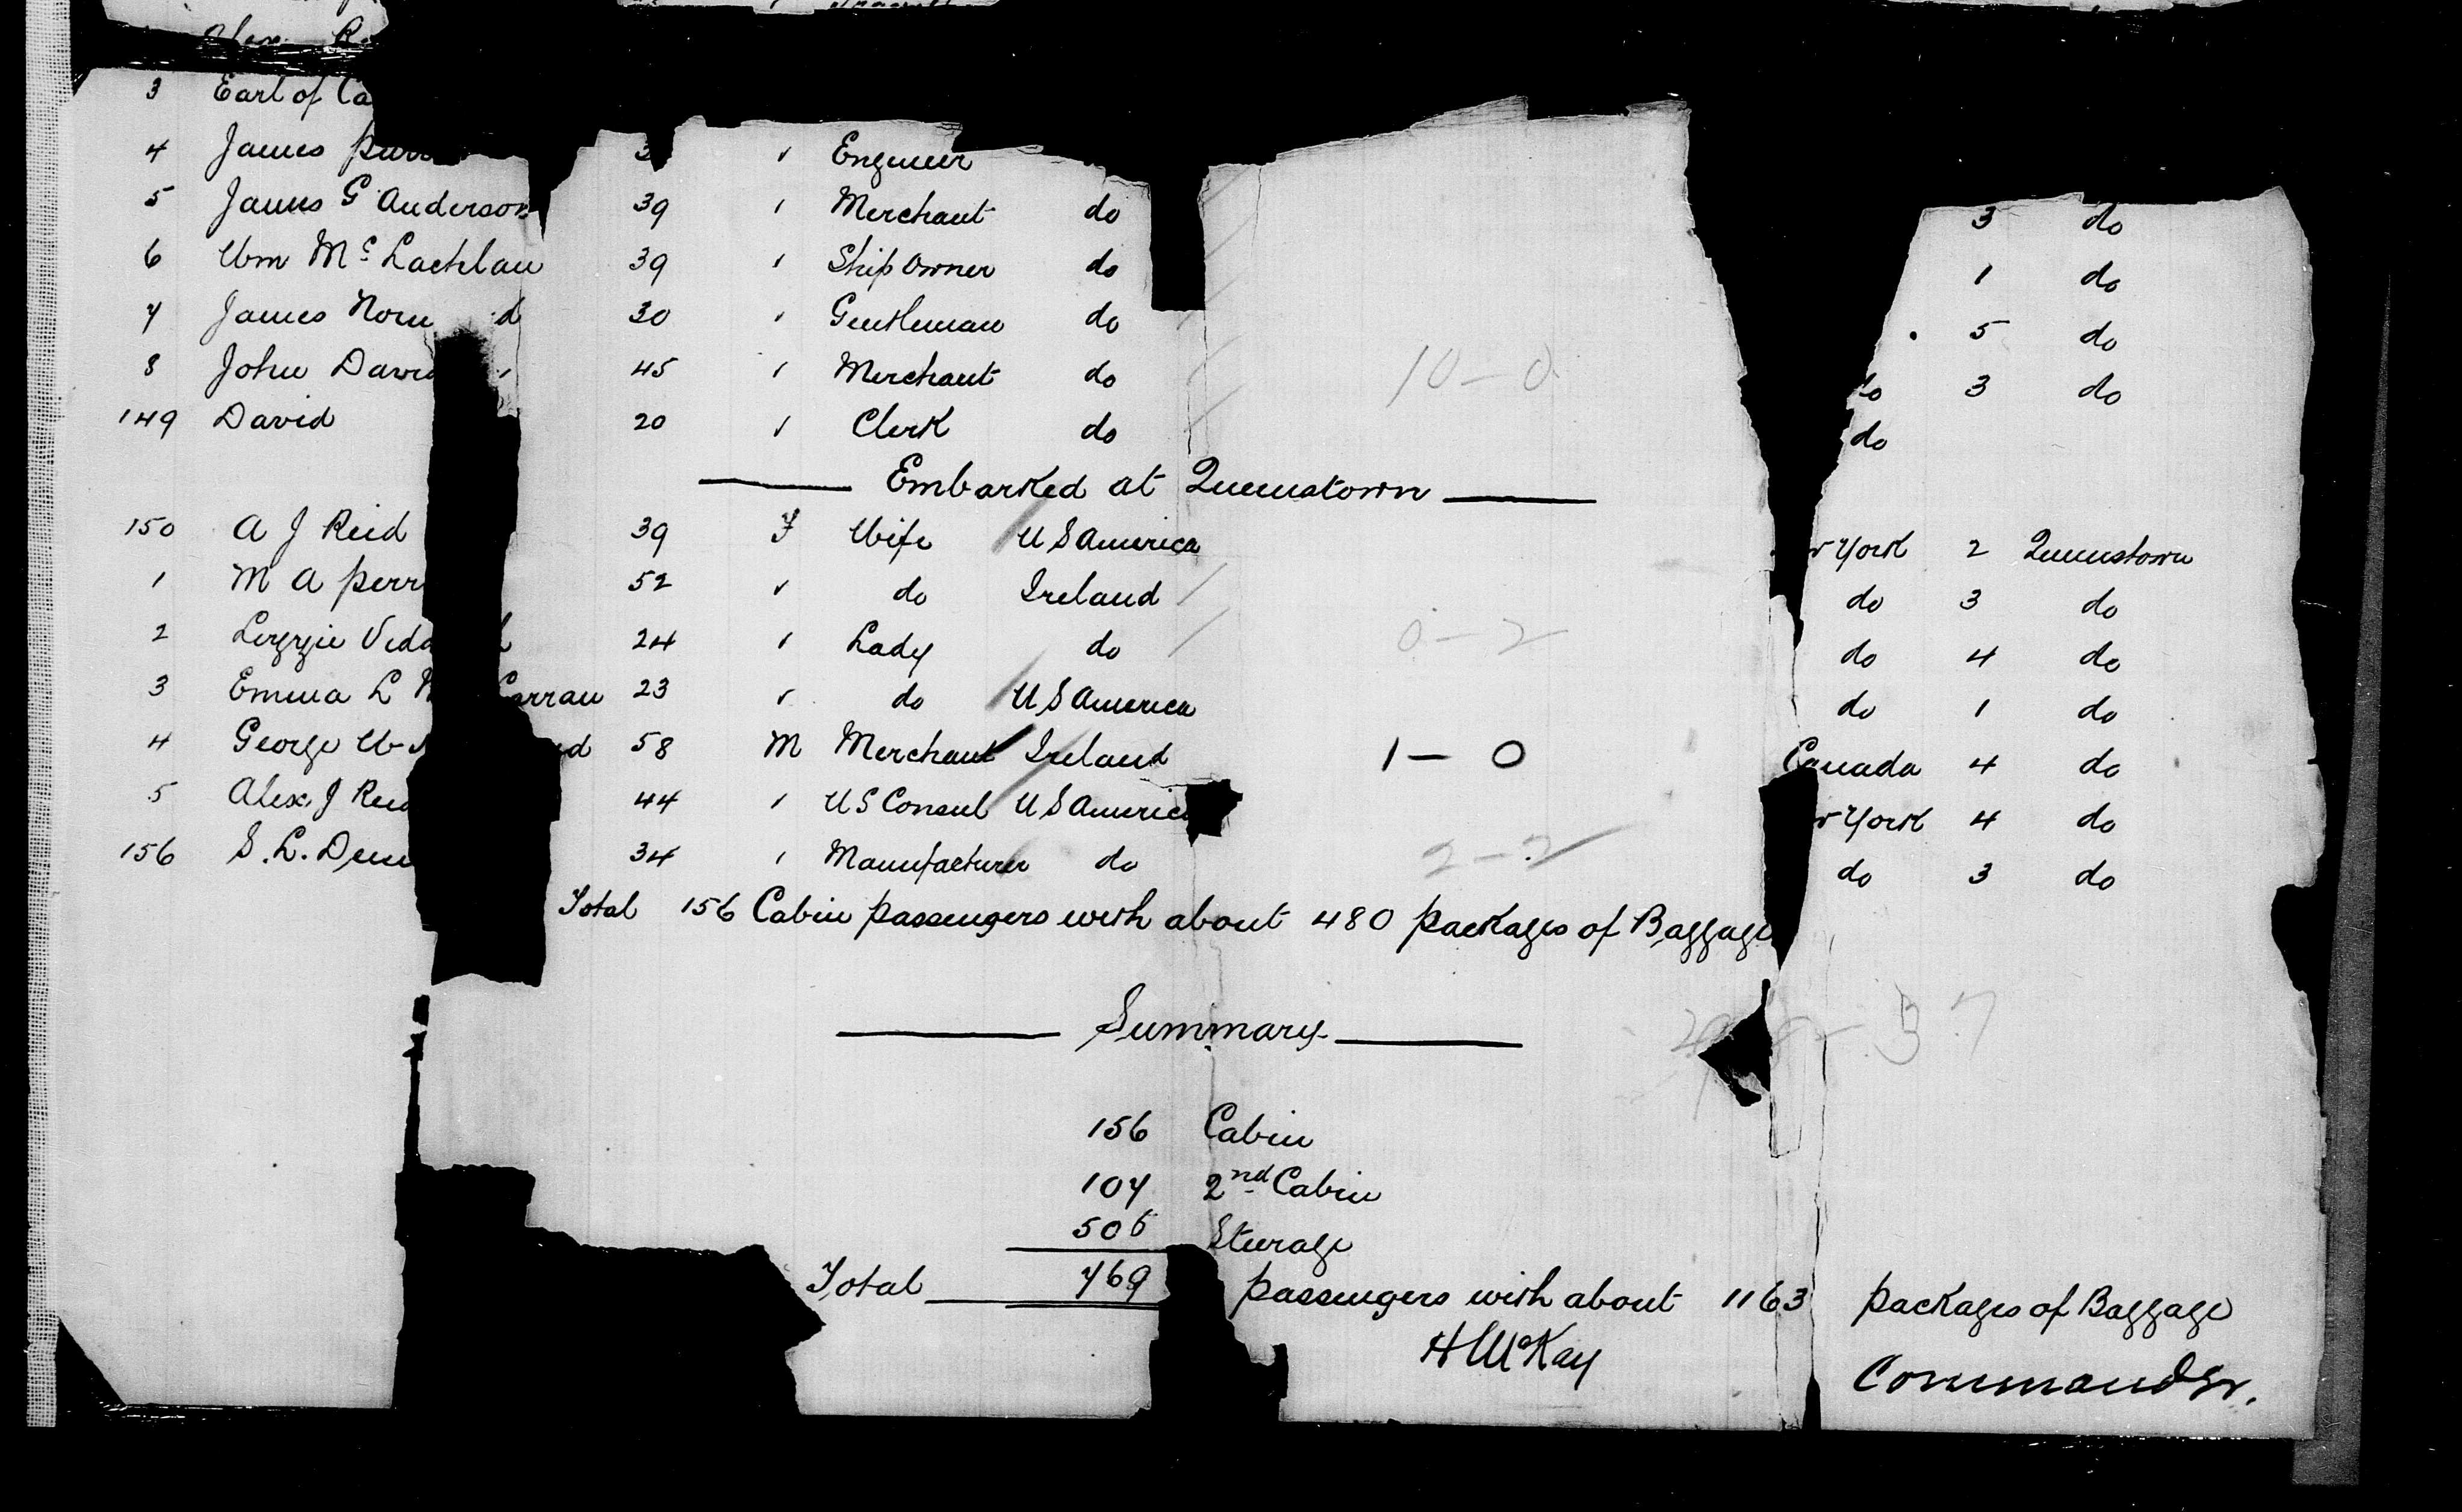 Alex. R
3 Earl of Ca
4 James Purr 3 " Engineer
5 James G Anderson 39 " Merchant do 3 do
6 Wm Mc Lachlan 39 " Ship Owner do 1 do
7 James Norm d 30 " Gentleman do 5 do
8 John David 45 " Merchant do 10-0 do 3 do
149 David 20 " Clerk do do
Embarked at Queenstown
150 A J Reid 39 F Wife U S America York 2 Queenstown
1 M A Perr 52 " do Ireland do 3 do
2 Lizzie Vedd 24 " Lady do 0-2 do 4 do
3 Emma L M Carran 23 " do U S America do 1 do
4 George W d 58 M Merchant Ireland 1-0 Canada 4 do
5 Alex. J Reid 44 " U S Consul U S America York 4 do
156 S. L. Dem 34 " Manufacturer do 2-2 do 3 do
Total 156 Cabin passengers with about 480 packages of Baggage
Summary
156 Cabin
107 2nd Cabin
506 Steerage
Total 769 passengers with about 1163 packages of Baggage
H McKay
Commander.